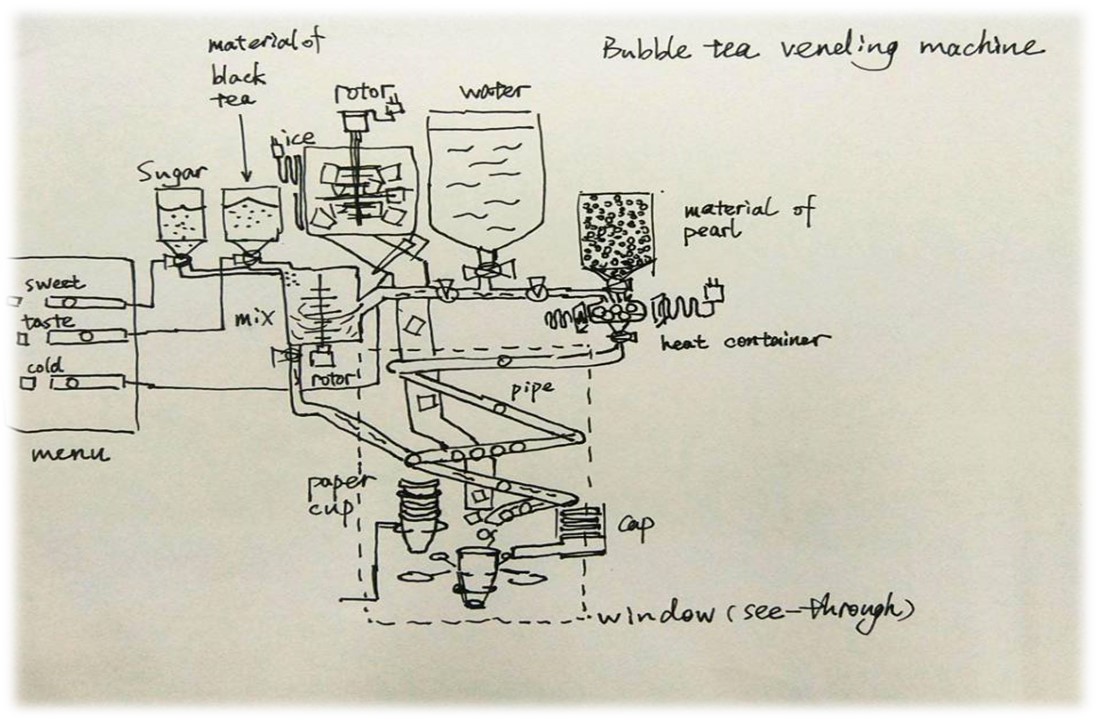 Bubble tea vending machine
material of
black
tea
rotor
water
ice
Sugar
material of
pearl
sweet
taste
mix
cold
rotor
heat container
pipe
menu
paper
cup
Cap
window (see-through)